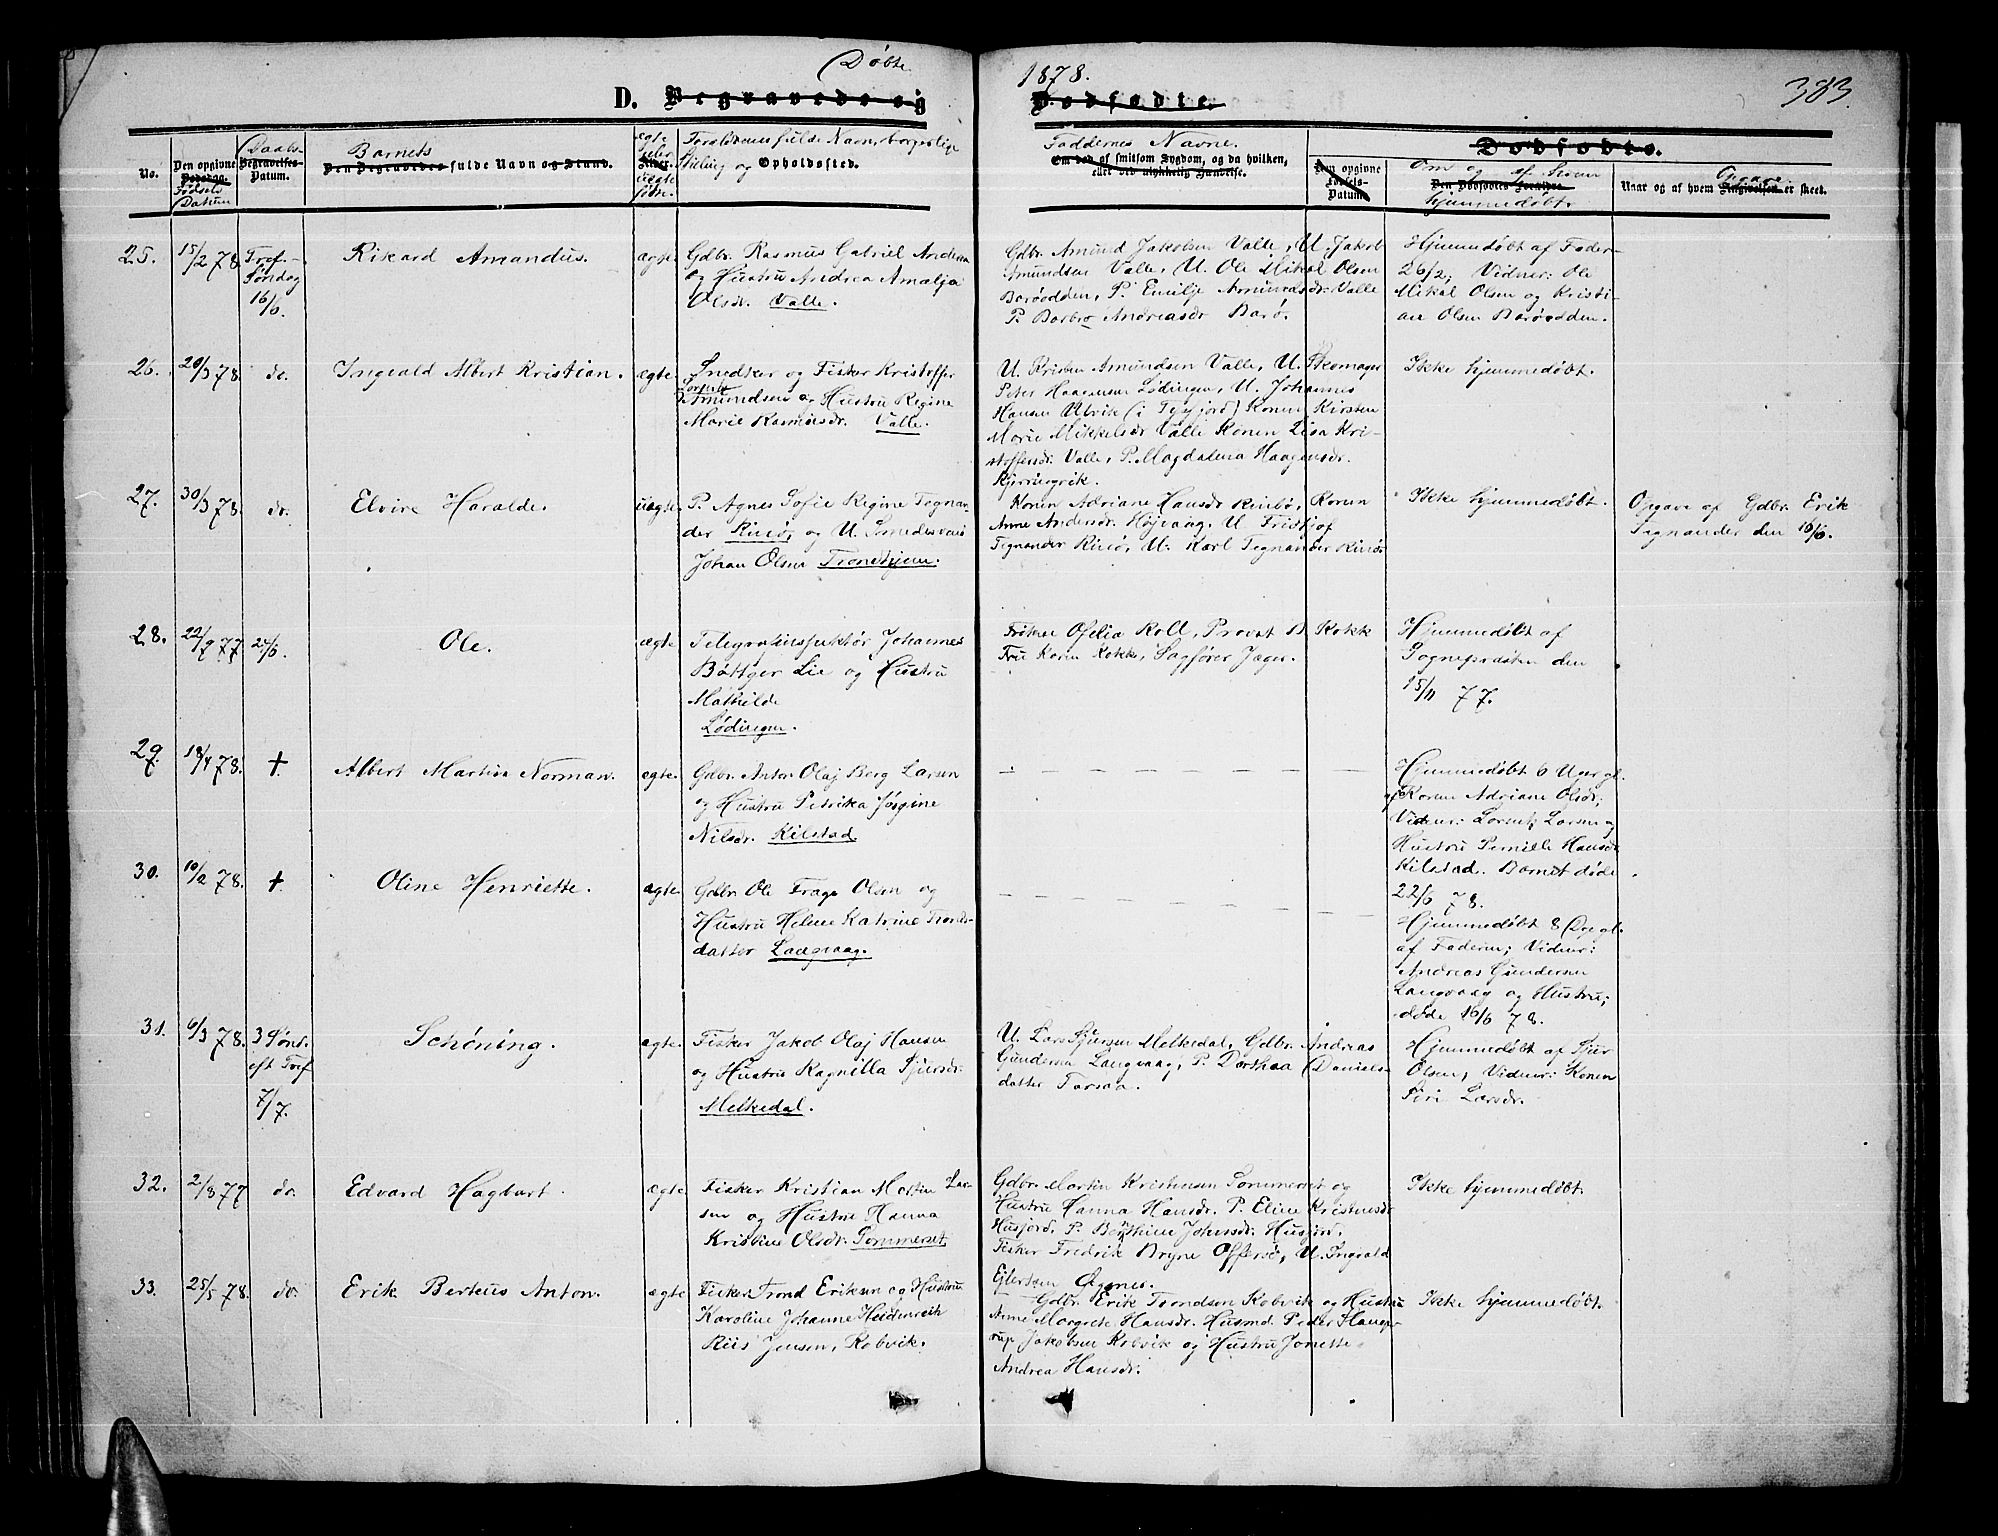 Døbte
1878.
383
D. Begravede og
Dødfødte.
No.
Den opgivne
Dødsdag.
Fødsels
Datum
Daabs-
Begravelses-
Datum.
Barnets
Den Begravedes fulde Navn og Stand.
ægte
eller
Alder.
uægte
født.
Forældrenes fulde Navn, borgerlige
Stilling og Opholdssted.
Faddernes Navne.
Om død af smitsom Sygdom, og da hvilken,
eller ved ulykkelig Hændelse.
Den opgivne
Fødsels-
Datum.
Dødfødte.
Om og af hvem
Den Dødfødtes Forældre.
hjemmedøbt.
Opgave
Naar og af hvem Angivelsen er skeet.
25.
15/2 78
Tref.
Søndag
16/6.
Rikard Amandus.
ægte
Gdbr. Rasmus Gabriel Andersen
og Hustru Andrea Amalja
Olsdr. Valle.
Gdbr. Amund Jakobsen Valle, U. Jakob
Amundsen Valle, U. Ole Mikal Olsen
Barøodden, P. Emilje Amundsdr. Valle
P. Barbro Andreasdr Barø.
Hjemmedøbt af Fader-
26/2; Vidner: Ole
Mikal Olsen og Kristi-
ane Olsen Barøodden.
26.
20/3 78.
do.
Ingvald Albert Kristian.
ægte
Snedker og Fisker Kristoffer
Amundsen og Hustru Regine
Marie Rasmusdr. Valle.
U. Kristen Amundsen Valle, U. Skomager
Peter Haagensen Lødingen, U. Johannes
Hansen Ulvik (i Tysfjord) Konen Kirsten
Marie Mikkelsdr Valle Konen Lisa Kri-
stoffersdr. Valle, P. Magdalena Haagensdr.
Kjerringvik.
Ikke hjemmedøbt.
27.
30/3 78.
do.
Elvire Haralde.
uægte
P. Agnes Sofie Regine Tegnan-
der Rinø, og U. Smedesvend
Johan Olsen Trondhjem.
Konen Adriane Hansdr Rinø, Konen
Anne Andersdr. Højvaag. U. Fritjof
Tegnander Rinø, U. Karl Tegnander Rinø
Ikke hjemmedøbt.
Opgave af Gdbr. Erik
Tegnander den 16/6.
28.
22/9 77
24/6.
Ole.
ægte
Telegrafinspektør Johannes
Bøttger Lie og Hustru
Mathilde
Lødingen.
Frøken Ofelia Roll, Provst B Kokk
Fru Karen Kokk, Sagfører Jæger.
Hjemmedøbt af
Sognepræsten den
15/11 77.
29.
18/4 78.
†.
Albert Martin Norman.
ægte.
Gdbr. Anton Olaj Berg Larsen
og Hustru Petrika Jørgine
Nilsdr. Kilstad
Hjemmedøbt 6 Uger gl.
af Konen Adriane Olsdr;
Vidner: Lorentz Larsen og
Hustru Pernille Hansdr
Kilstad. Barnet døde
22/6 78.
30.
10/2 78.
†.
Oline Henriette.
ægte.
Gdbr. Ole Trags Olsen og
Hustru Helene Katrine Tronds-
datter Langvaag.
Hjemmedøbt 8 Dge gl.
af Faderen; Vidner:
Andreas Gundersen
Langvaag og Hustru;
døde 16/6 78.
31.
6/3 78.
3 Sønd.
eft Tref
7/7.
Schøning.
ægte.
Fisker Jakob Olaj Hansen
og Hustru Ragnilla Sjursdr.
Melkedal.
U. Lars Sjursen Melkedal, Gdbr. Andreas
Gundersen Langvaag, P. Dorthea Daniels-
datter Tarsaa.
Hjemmedøbt af Sjur
Olsen, Vidner: Konen
Siri Larsdr.
32.
2/8 77
do.
Edvard Hagbart.
ægte
Fisker Kristian Martin Lar-
sen og Hustru Hanna
Kristine Olsdr. Sommerset,
Gdbr. Martin Kristensen Sommerset og
Hustru Hanna Hansdr. P. Eline Kristensdr
Husjord, P. Berthine Johansdr. Husjord,
Fisker Fredrik Bryne Offersø, U. Ingvald
Ejlertsen Øgsnes.
Ikke hjemmedøbt
33.
25/5 78.
do.
Erik Berteus Anton.
ægte
Fisker Trond Eriksen og Hustru
Karoline Johanne Heidenreich
Riis Jensen, Kobvik.
Gdbr. Erik Trondsen Kobvik og Hustru
Anne Margrete Hansdr. Husmd. Peder Hauge-
rup Jakobsen Kobvik og Hustru Jonette
Andrea Hansdr.
Ikke hjemmedøbt.